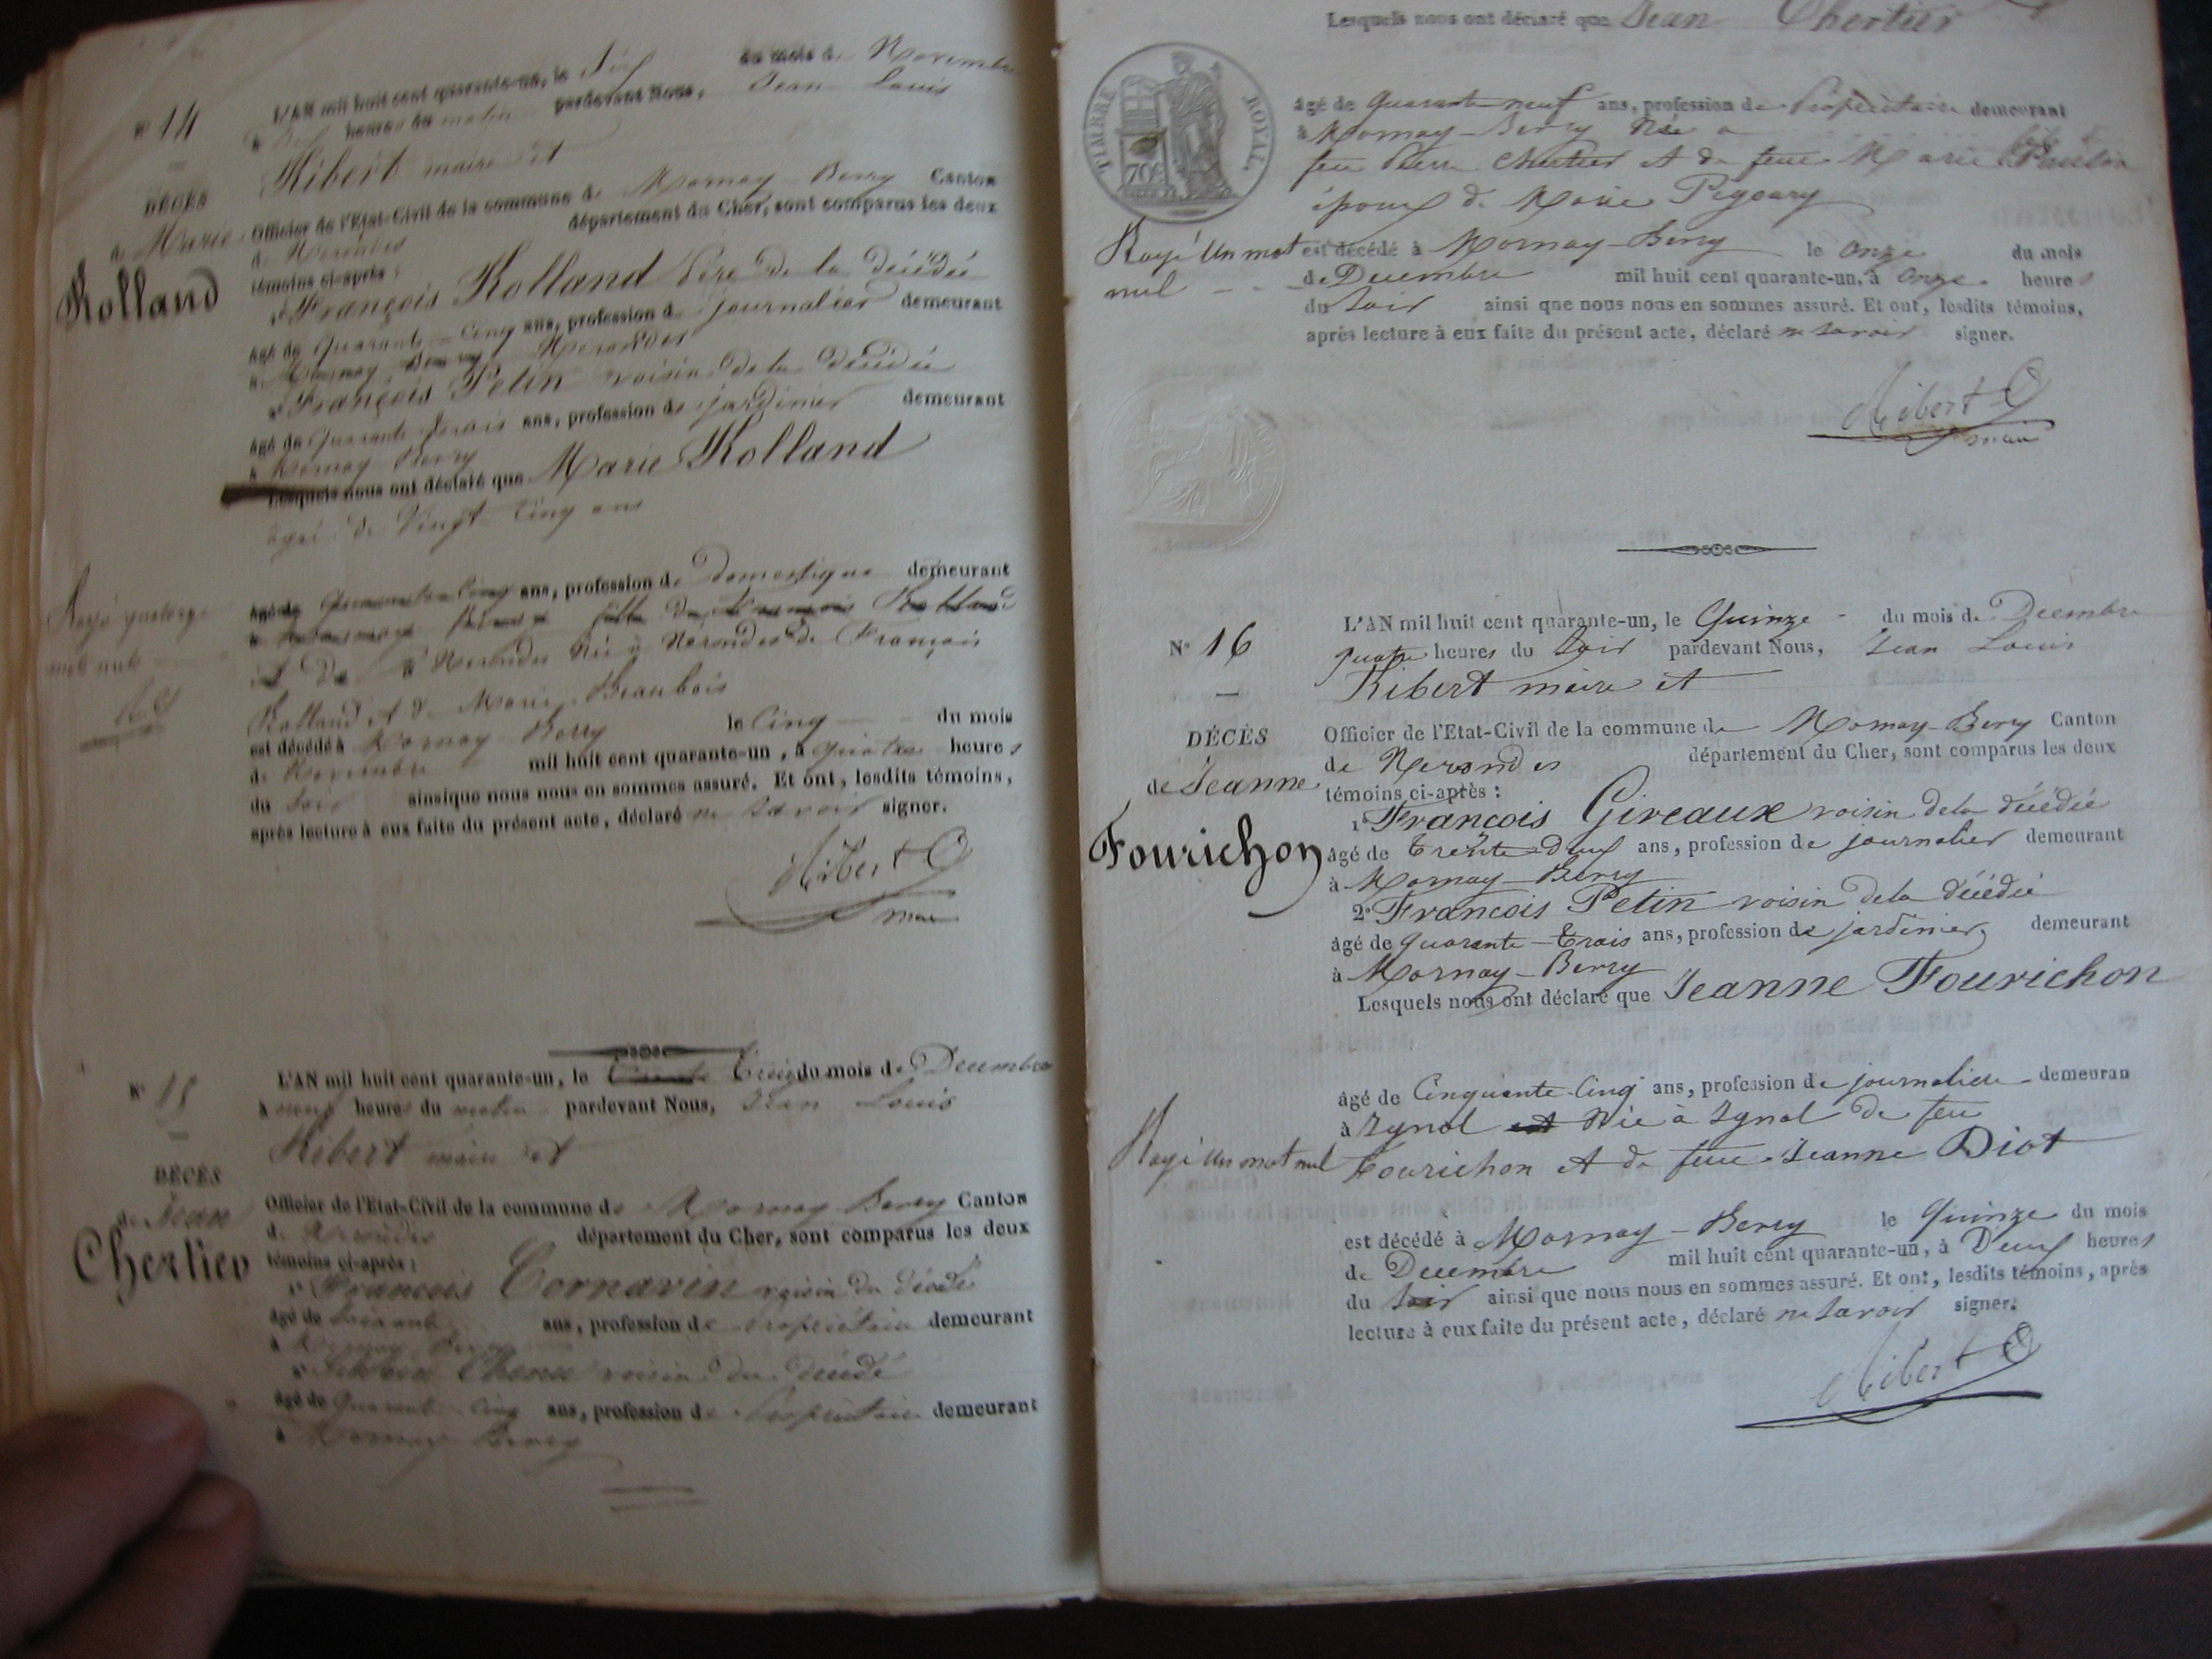 N° 14
DÉCÈS
de Marie
Rolland
L'AN mil huit cent quarante-un, le Six du mois de Novembre
à heures du matin pardevant Nous, Jean Louis
Ribert maire et
Officier de l'Etat-Civil de la commune de Mornay-Berry Canton
de Nerondes département du Cher, sont comparus les deux
témoins ci-après :
1° François Rolland Père de la décédée
âgé de Quarante-cinq ans, profession de journalier demeurant
à Mornay Berry Nerondes
2° François Petin voisin de la décédée
âgé de Quarante-trois ans, profession de jardinier demeurant
à Mornay Berry
Lesquels nous ont déclaré que Marie Rolland
agée de Vingt Cinq ans
Rayé quatorze
mots nuls
âgé de Quarante Cinq ans, profession de Domestique demeurant
à fille de François Rolland
et De à Nerondes Née à Nerondes de François
Rolland et de Marie Beaubois
est décédé à Mornay Berry le Cinq du mois
de Novembre mil huit cent quarante-un, à Quatre heures
du Soir ainsique nous nous en sommes assuré. Et ont, lesdits témoins,
après lecture à eux faite du présent acte, déclaré ne savoir signer.
Ribert
maire
N° 15
DÉCÈS
de Jean
Chertier
L'AN mil huit cent quarante-un, le Treize du mois de Decembre
à neuf heures du matin pardevant Nous, Jean Louis
Ribert maire et
Officier de l'Etat-Civil de la commune de Mornay Berry Canton
de Nerondes département du Cher, sont comparus les deux
témoins ci-après :
1° François Cornavin voisin du décédé
âgé de Soixante ans, profession de Propriétaire demeurant
à Mornay Berry
2° Chenu voisin du décédé
âgé de Quarante-Cinq ans, profession de Propriétaire demeurant
à Mornay Berry
Lesquels nous ont déclaré que Jean Chertier
TIMBRE ROYAL
70c
âgé de Quarante neuf ans, profession de Propriétaire demeurant
à Mornay-Berry Née a
feu Pierre Chertier et de feue Marie
époux de Marie Pigoury
Rayé Un mot
nul
est décédé à Mornay-Berry le Onze du mois
de Decembre mil huit cent quarante-un, à Onze heures
du Soir ainsi que nous nous en sommes assuré. Et ont, lesdits témoins,
après lecture à eux faite du présent acte, déclaré ne savoir signer.
Ribert
maire
N° 16
DÉCÈS
de Jeanne
Fourichon
L'AN mil huit cent quarante-un, le Quinze du mois de Decembre
quatre heures du Soir pardevant Nous, Jean Louis
Ribert maire et
Officier de l'Etat-Civil de la commune de Mornay-Berry Canton
de Nerondes département du Cher, sont comparus les deux
témoins ci-après :
1° François Gireaux voisin de la décédée
âgé de Trente-deux ans, profession de journalier demeurant
à Mornay-Berry
2° François Petin voisin de la décédée
âgé de quarante-Trois ans, profession de jardinier demeurant
à Mornay-Berry
Lesquels nous ont déclaré que Jeanne Fourichon
âgé de Cinquante-Cinq ans, profession de journaliere demeuran
à Ignol et Née à Ignol de feu
Rayé Un mot nul
Fourichon et de feue Jeanne Diot
est décédé à Mornay-Berry le Quinze du mois
de Decembre mil huit cent quarante-un, à Deux heures
du Soir ainsi que nous nous en sommes assuré. Et ont, lesdits témoins, après
lecture à eux faite du présent acte, déclaré ne savoir signer.
Ribert